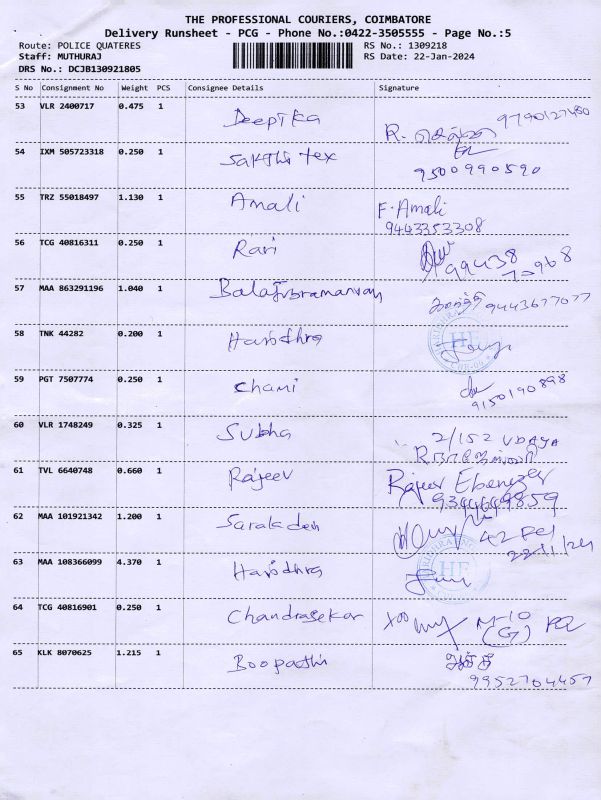 THE PROFESSIONAL COURIERS, COIMBATORE
Delivery Runsheet - PCG - Phone No.:0422-3505555 - Page No.:5
Route: POLICE QUATERES RS No.: 1309218
Staff: MUTHURAJ RS Date: 22-Jan-2024
DRS No.: DCJB130921805
S No Consignment No Weight PCS Consignee Details Signature
53 VLR 2400717 0.475 1 Deepika 9790127480
R.
54 IXM 505723318 0.250 1 Sakthi tex
9500990590
55 TRZ 55018497 1.130 1 Amali F. Amali
9443353308
56 TCG 40816311 0.250 1 Ravi
57 MAA 863291196 1.040 1 Balasubramaniyan 9443677077
58 TNK 44282 0.200 1 HF
59 PGT 7507774 0.250 1 Chami
9150190898
60 VLR 1748249 0.325 1 Subha 2/152 UDAYA
61 TVL 6640748 0.660 1 Rajeev Rajeev Ebenezer
9344649859
62 MAA 101921342 1.200 1
22/1/24
63 MAA 108366099 4.370 1 HF
64 TCG 40816901 0.250 1 Chandrasekar M-10
(G)
65 KLK 8070625 1.215 1 Boopathi
9952704457